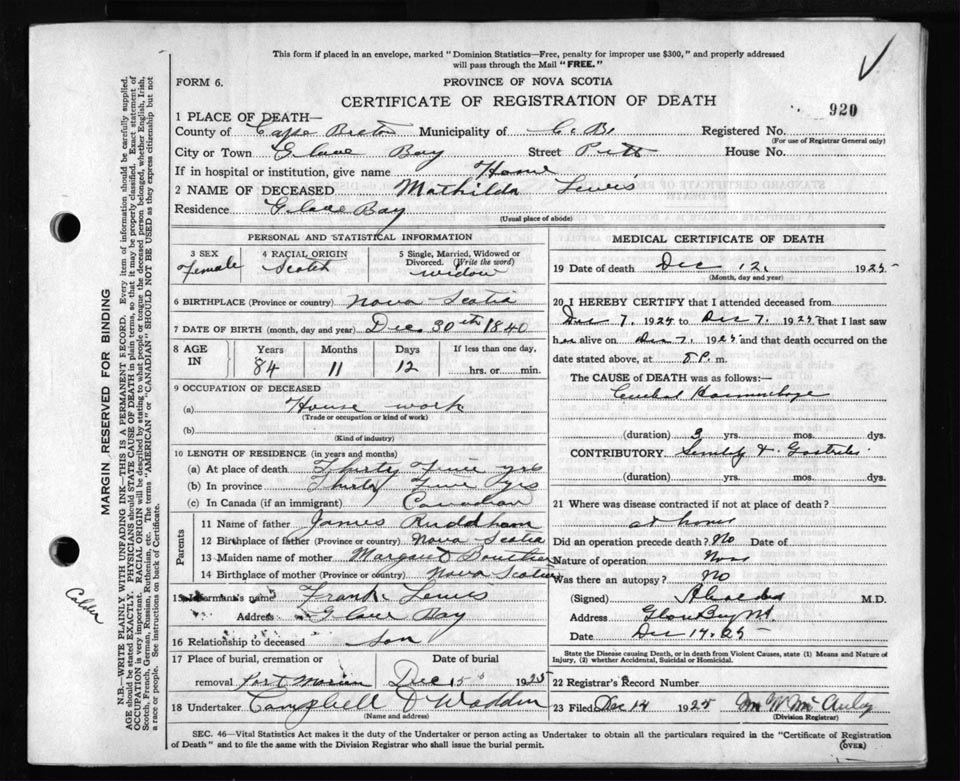 This form if placed in an envelope, marked "Dominion Statistics—Free, penalty for improper use $300," and properly addressed
will pass through the Mail "FREE."
FORM 6.
PROVINCE OF NOVA SCOTIA
CERTIFICATE OF REGISTRATION OF DEATH
920
1 PLACE OF DEATH—
County of Cape Breton Municipality of C. B. Registered No.
(For use of Registrar General only)
City or Town Glace Bay Street Pitt House No.
If in hospital or institution, give name Home
2 NAME OF DECEASED Mathilda Lewis
Residence Glace Bay
(Usual place of abode)
PERSONAL AND STATISTICAL INFORMATION
3 SEX Female
4 RACIAL ORIGIN Scotch
5 Single, Married, Widowed or Divorced. (Write the word) widow
6 BIRTHPLACE (Province or country) Nova Scotia
7 DATE OF BIRTH (month, day and year) Dec 30th 1840
8 AGE IN Years Months Days If less than one day,
84 11 12 hrs. or min.
9 OCCUPATION OF DECEASED
(a) House work
(Trade or occupation or kind of work)
(b)
(Kind of industry)
10 LENGTH OF RESIDENCE (in years and months)
(a) At place of death Thirty Five yrs
(b) In province Thirty Five Yrs
(c) In Canada (if an immigrant) Canadian
Parents
11 Name of father James
12 Birthplace of father (Province or country) Nova Scotia
13 Maiden name of mother Margaret
14 Birthplace of mother (Province or country) Nova Scotia
15 Informant's name Frank Lewis
Address Glace Bay
16 Relationship to deceased son
17 Place of burial, cremation or Date of burial
removal Port Morien Dec 15 1925
18 Undertaker Campbell & Wadden
(Name and address)
MEDICAL CERTIFICATE OF DEATH
19 Date of death Dec 12, 1925
(Month, day and year)
20 I HEREBY CERTIFY that I attended deceased from
Dec 7, 1925 to Dec 7, 1925 that I last saw
her alive on Dec 7, 1925 and that death occurred on the
date stated above, at 8 P. m.
The CAUSE of DEATH was as follows:—
Cerebral Haemorrhage
(duration) 3 yrs. mos. dys.
CONTRIBUTORY Senility &
(duration) yrs. mos. dys.
21 Where was disease contracted if not at place of death?
at home
Did an operation precede death? No Date of
Nature of operation None
Was there an autopsy? No
(Signed) M.D.
Address Glace Bay
Date Dec 14. 25
State the Disease causing Death, or in death from Violent Causes, state (1) Means and Nature of
Injury, (2) whether Accidental, Suicidal or Homicidal.
22 Registrar's Record Number
23 Filed Dec 14 1925 Wm W McAuley
(Division Registrar)
SEC. 46—Vital Statistics Act makes it the duty of the Undertaker or person acting as Undertaker to obtain all the particulars required in the "Certificate of Registration
of Death" and to file the same with the Division Registrar who shall issue the burial permit.
(OVER)
MARGIN RESERVED FOR BINDING
Calder
N.B.—WRITE PLAINLY WITH UNFADING INK—THIS IS A PERMANENT RECORD. Every item of information should be carefully supplied.
AGE should be stated EXACTLY. PHYSICIANS should STATE CAUSE OF DEATH in plain terms, so that it may be properly classified. Exact statement of
OCCUPATION is very important. RACIAL ORIGIN will be described by stating to what people or tongue the deceased person belonged, whether English, Irish,
Scotch, French, German, Russian, Ruthenian, etc. The terms "AMERICAN" or "CANADIAN" SHOULD NOT BE USED as they express citizenship but not
a race or people. See instructions on back of Certificate.